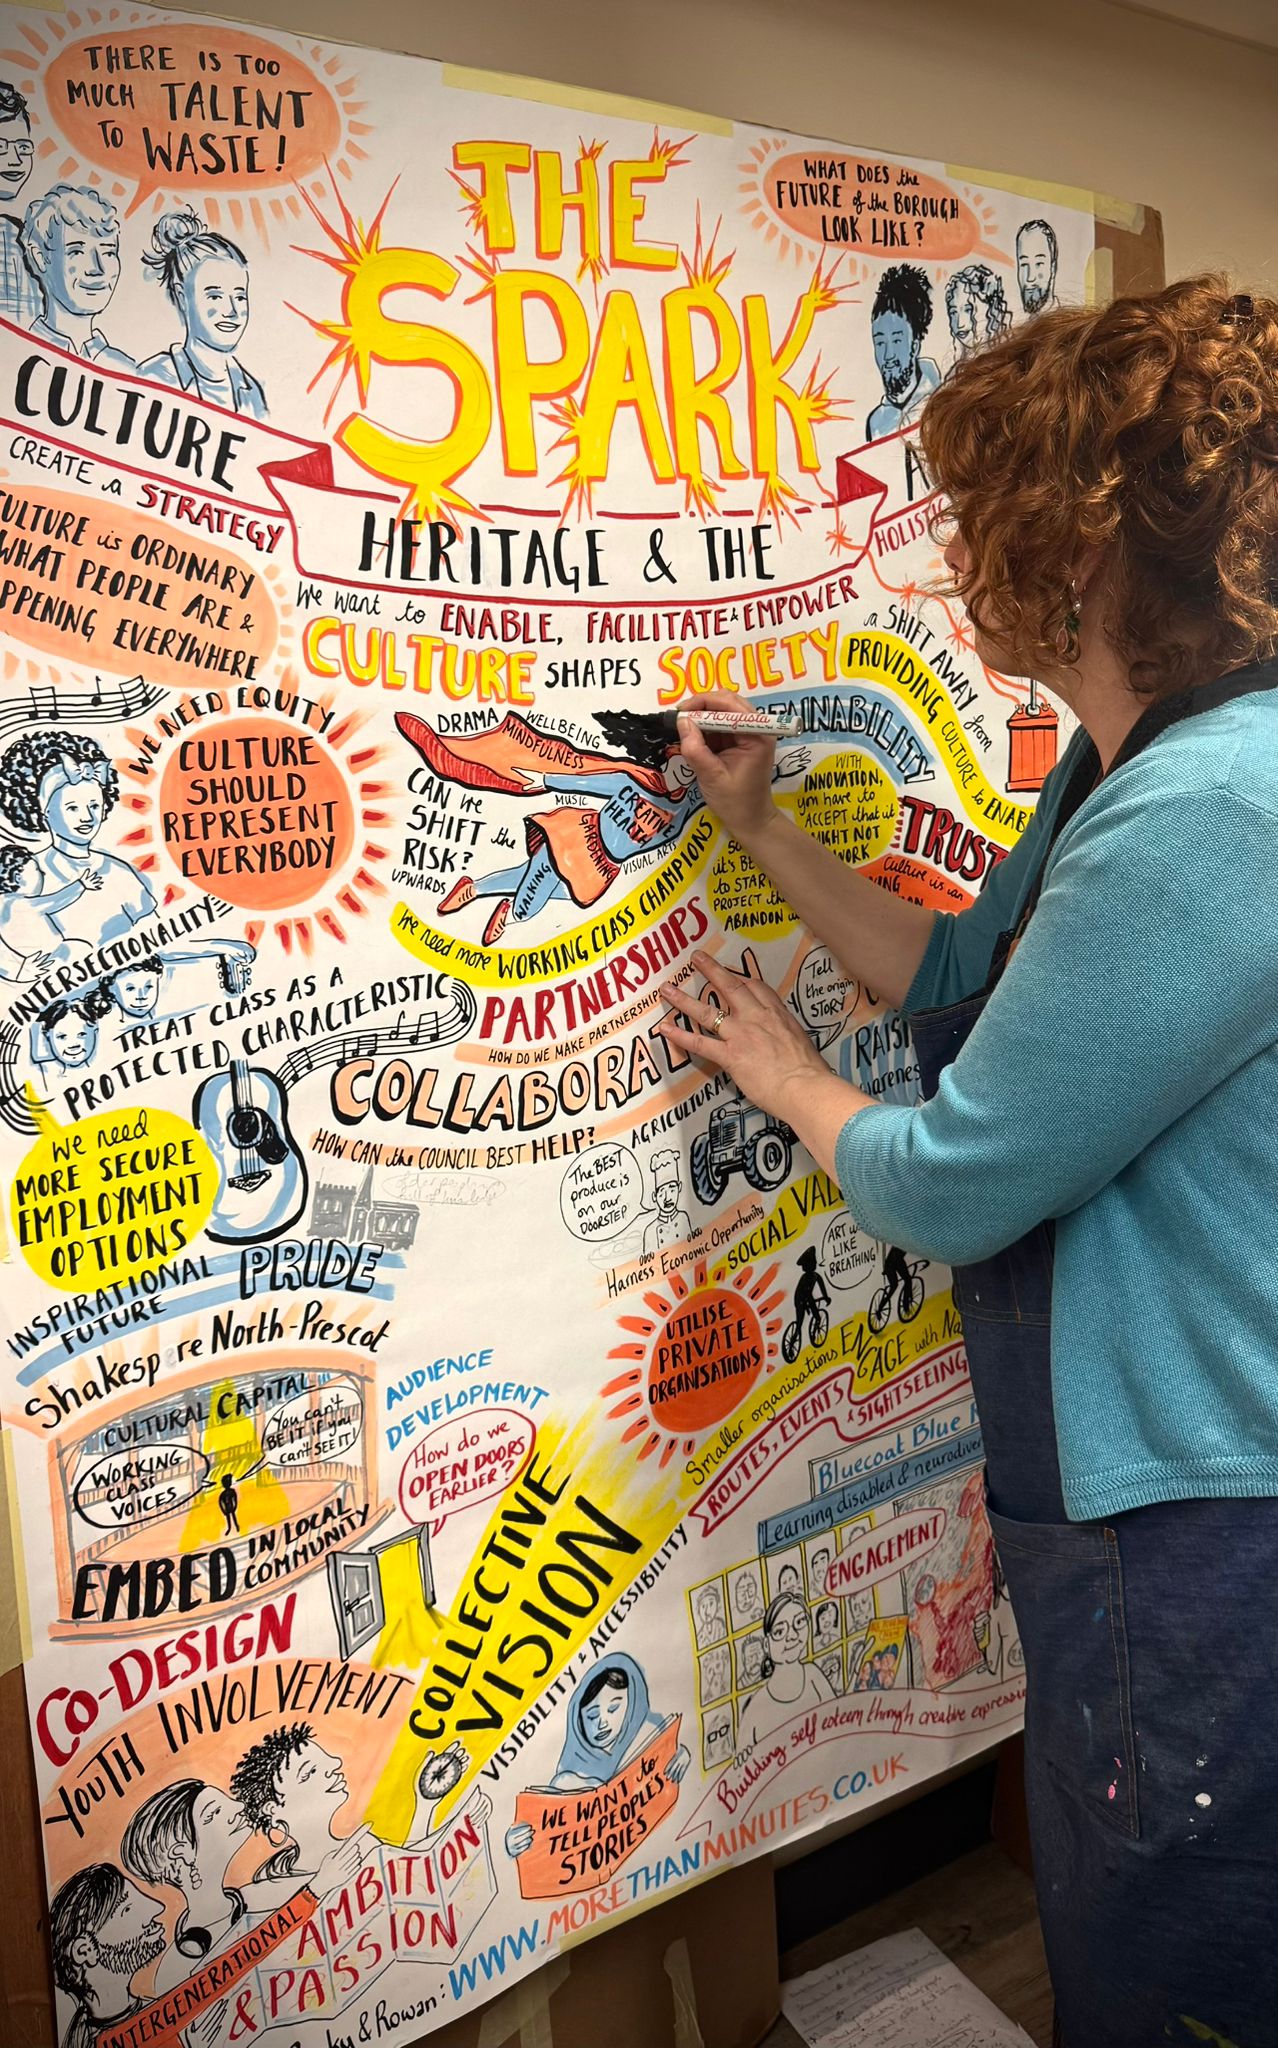 THERE IS TOO
MUCH TALENT
TO WASTE!
THE
SPARK
WHAT DOES the
FUTURE of the BOROUGH
LOOK LIKE?
CULTURE
HERITAGE & THE
CREATE a STRATEGY
HOLISTIC
We want to ENABLE, FACILITATE & EMPOWER
CULTURE SHAPES SOCIETY
CULTURE is ORDINARY
WHAT PEOPLE ARE &
EVERYWHERE
a SHIFT AWAY from
PROVIDING CULTURE to
WE NEED EQUITY
CULTURE
SHOULD
REPRESENT
EVERYBODY
DRAMA
WELLBEING
MINDFULNESS
MUSIC
CREATIVE
HEALTH
GARDENING
VISUAL ARTS
WALKING
CAN we
SHIFT the
RISK?
UPWARDS
WITH
INNOVATION,
you have to
ACCEPT that it
MIGHT NOT
WORK
TRUST
Culture is an
to START
PROJECT
ABANDON
We need more WORKING CLASS CHAMPIONS
INTERSECTIONALITY
TREAT CLASS AS A
PROTECTED CHARACTERISTIC
PARTNERSHIPS
HOW DO WE MAKE PARTNERSHIPS WORK
COLLABORAT
HOW CAN the COUNCIL BEST HELP?
Tell
the origin
STORY
AGRICULTURAL
We need
MORE SECURE
EMPLOYMENT
OPTIONS
The BEST
produce is
on our
DOORSTEP
Harness Economic Opportunity
SOCIAL
ART
LIKE
BREATHING!
INSPIRATIONAL
FUTURE
PRIDE
Shakespere North-Prescot
CULTURAL CAPITAL
WORKING
CLASS
VOICES
You can't
BE IT if you
can't SEE IT!
EMBED IN LOCAL
COMMUNITY
AUDIENCE
DEVELOPMENT
How do we
OPEN DOORS
EARLIER?
UTILISE
PRIVATE
ORGANISATIONS
Smaller organisations ENGAGE with
ROUTES, EVENTS & SIGHTSEEING
Bluecoat Blue
Learning disabled & neurodiver
ENGAGEMENT
Building self esteem through creative
CO-DESIGN
YOUTH INVOLVEMENT
COLLECTIVE
VISION
VISIBILITY & ACCESSIBILITY
WE WANT to
TELL PEOPLE'S
STORIES
INTERGENERATIONAL
AMBITION
& PASSION
& Rowan: WWW.MORETHANMINUTES.CO.UK